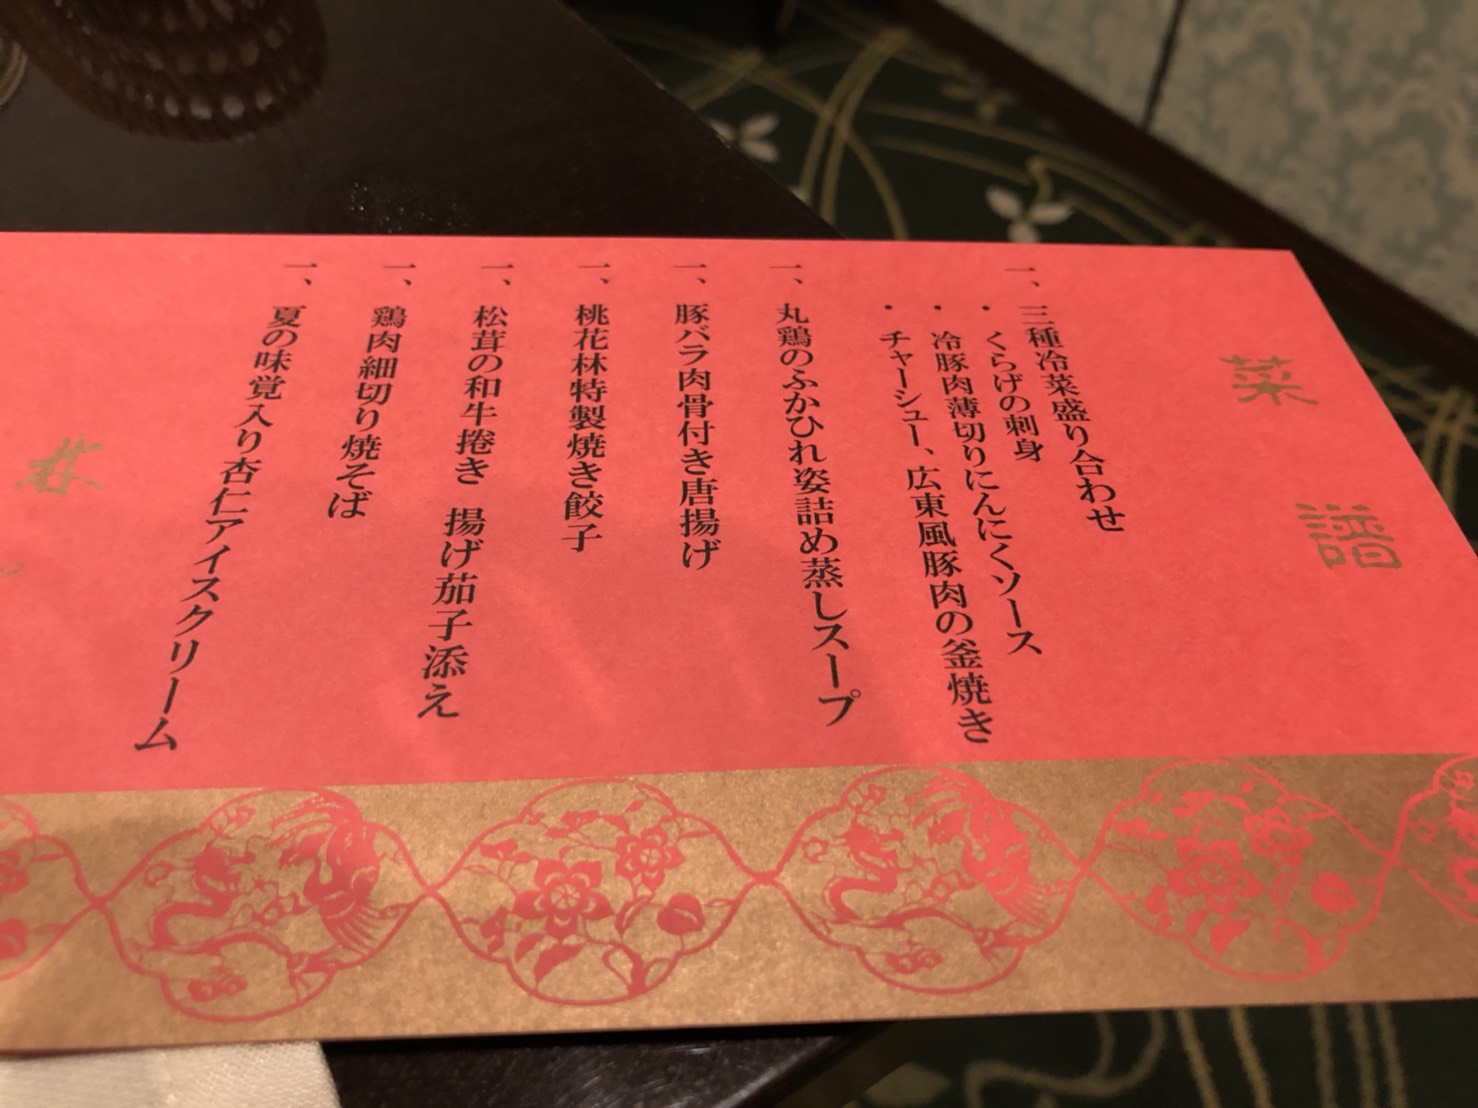 菜譜
一、三種冷菜盛り合わせ
・くらげの刺身
・冷豚肉薄切りにんにくソース
・チャーシュー、広東風豚肉の釜焼き
一、丸鶏のふかひれ姿詰め蒸しスープ
一、豚バラ肉骨付き唐揚げ
一、桃花林特製焼き餃子
一、松茸の和牛捲き 揚げ茄子添え
一、鶏肉細切り焼そば
一、夏の味覚入り杏仁アイスクリーム
林